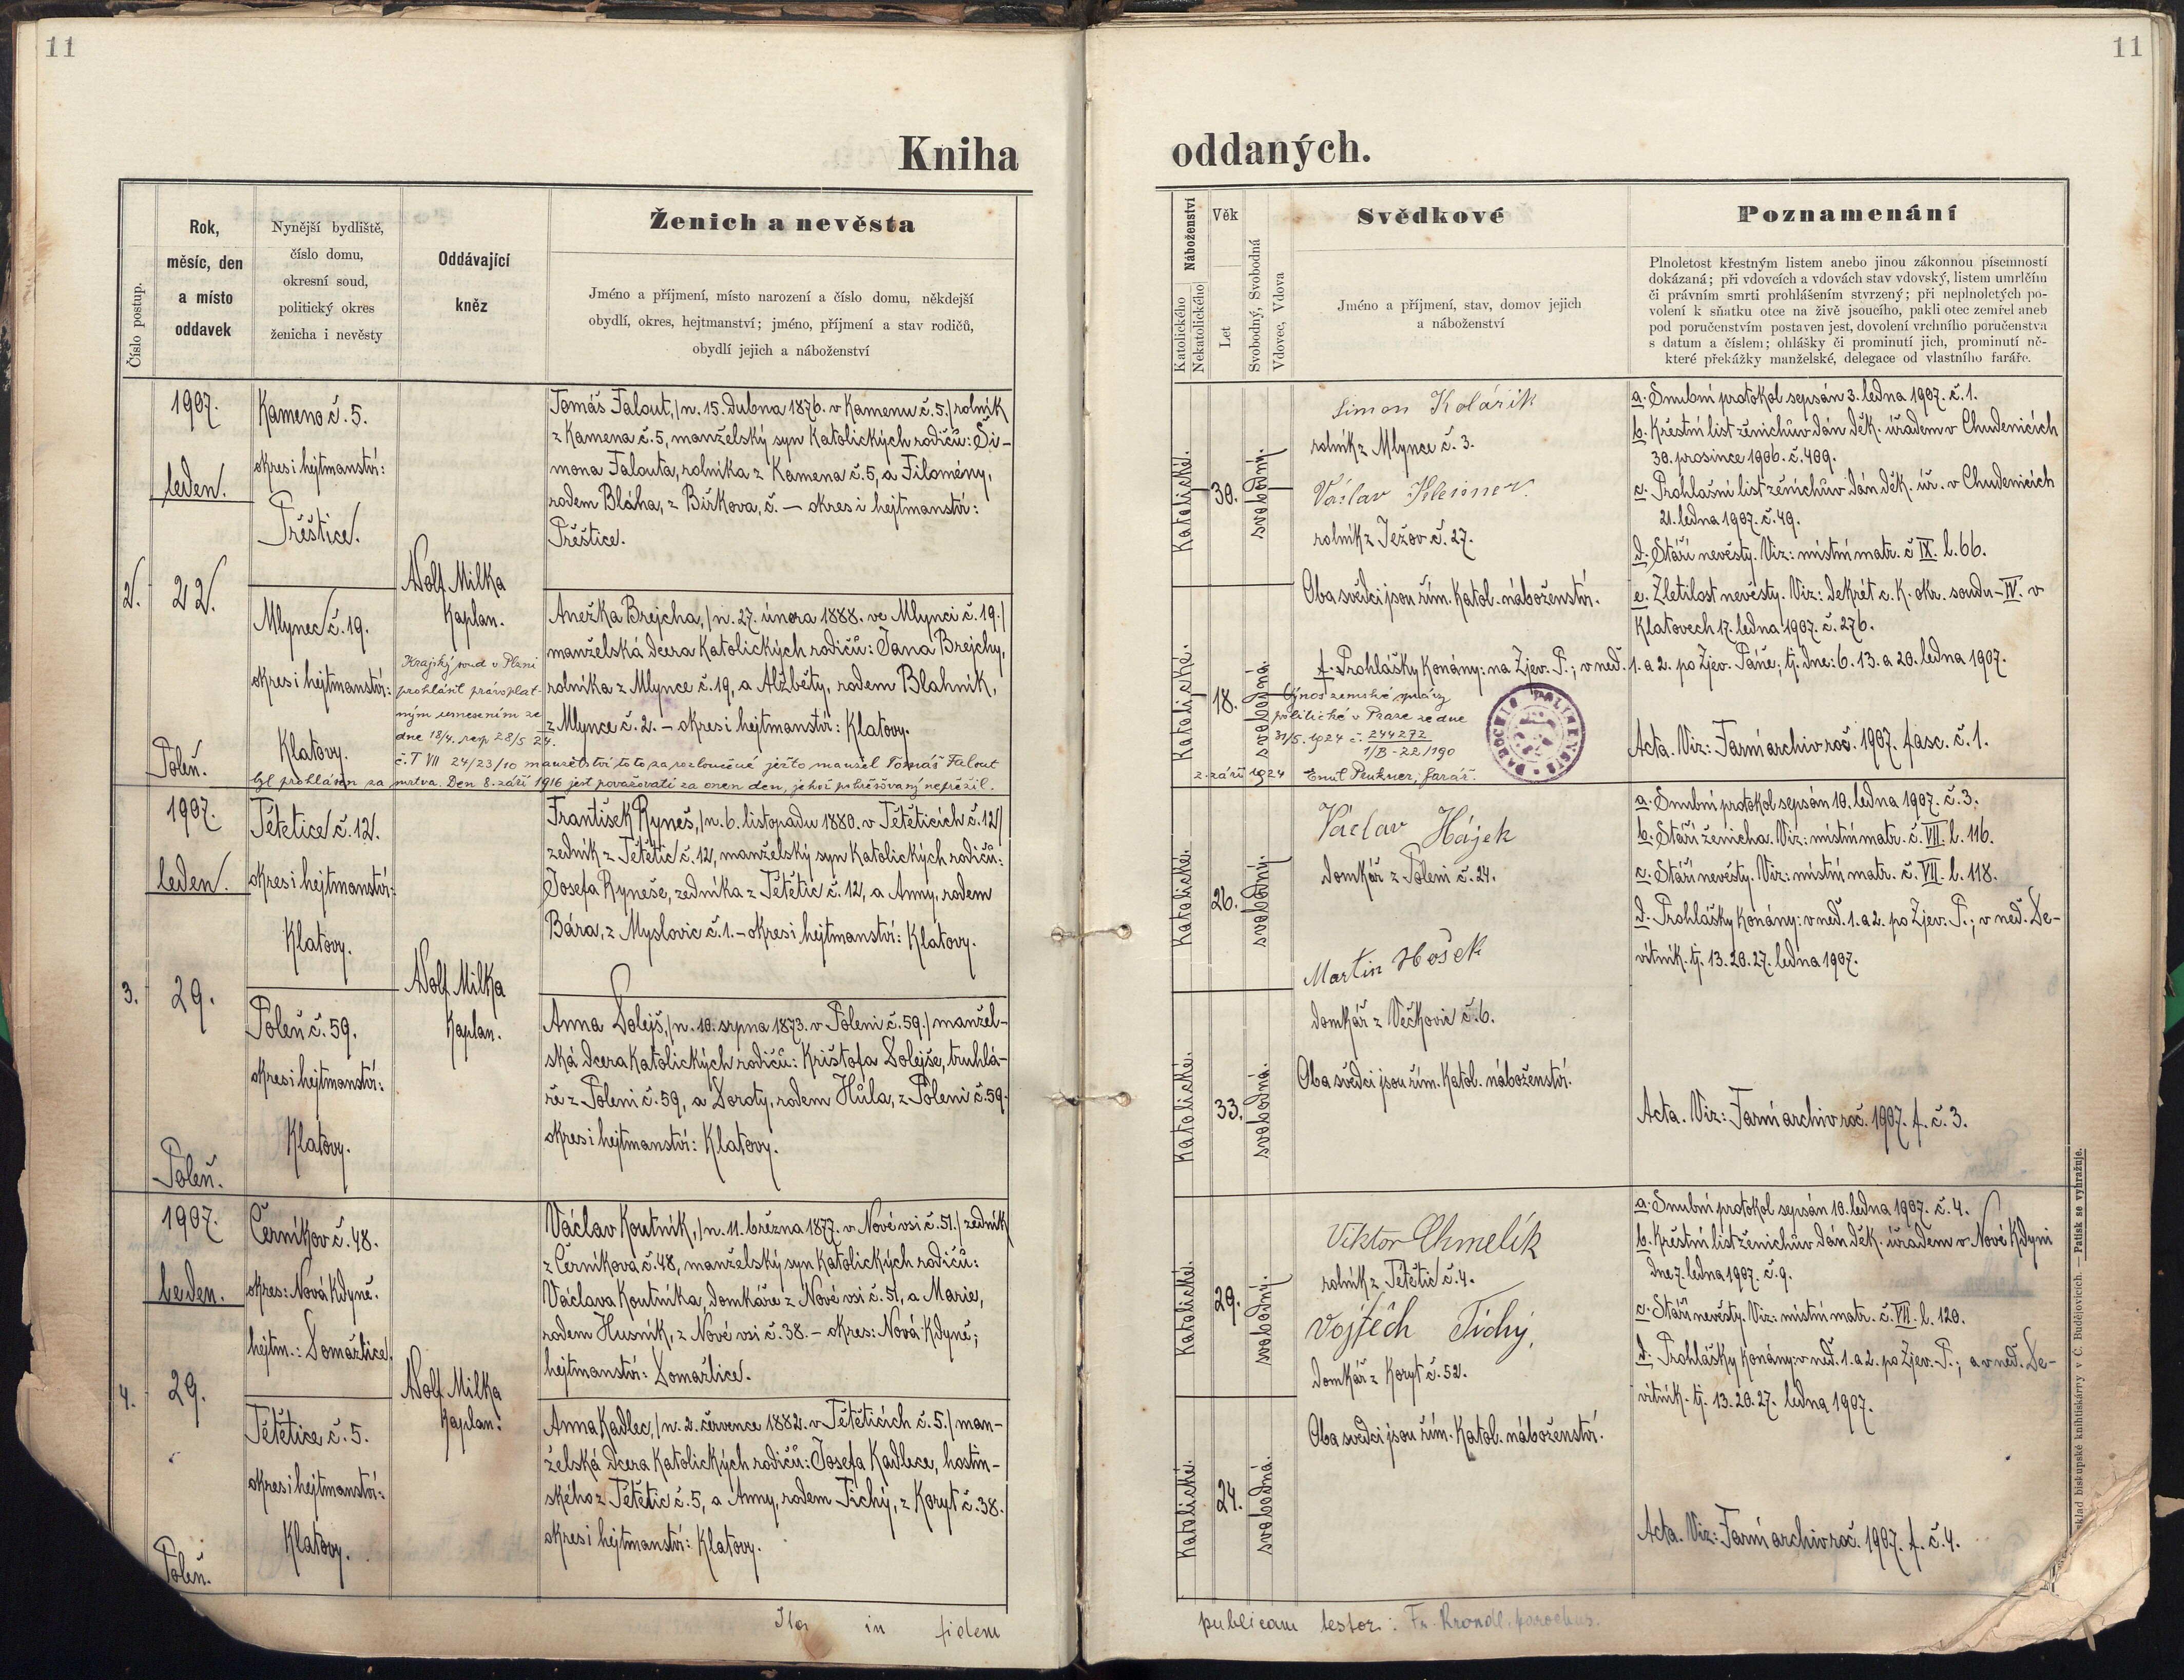 11
11
Kniha
oddaných.
Číslo postup.
Rok,
měsíc, den
a místo
oddavek
Nynější bydliště,
číslo domu,
okresní soud,
politický okres
ženicha i nevěsty
Oddávající
kněz
Ženich a nevěsta
Jméno a příjmení, místo narození a číslo domu, někdejší
obydlí, okres, hejtmanství; jméno, příjmení a stav rodičů,
obydlí jejich a náboženství
Náboženství
Katolického
Nekatolického
Věk
Let
Svobodný, Svobodná
Vdovec, Vdova
Svědkové
Jméno a příjmení, stav, domov jejich
a náboženství
Poznamenání
Plnoletost křestným listem anebo jinou zákonnou písemností
dokázaná; při vdovcích a vdovách stav vdovský, listem umrlčím
či právním smrti prohlášením stvrzený; při neplnoletých po-
volení k sňatku otce na živě jsoucího, pakli otec zemřel aneb
pod poručenstvím postaven jest, dovolení vrchního poručenstva
s datum a číslem; ohlášky či prominutí jich, prominutí ně-
které překážky manželské, delegace od vlastního faráře.
2.
1907.
leden.
22.
Poleň.
Kameno č. 5.
okres i hejtmanství:
Přeštice.
Mlynec č. 19.
okres i hejtmanství:
Klatovy.
Adolf Milka
Kaplan.
Tomáš Falout, /n. 15. dubna 1876. v Kamenu č. 5./ rolník
z Kamena č. 5, manželský syn katolických rodičů: Ši-
mona Falouta, rolníka z Kamena č. 5, a Filomény,
rodem Bláha, z Bířkova, č. – okres i hejtmanství:
Přeštice.
Anežka Brejcha, /n. 27. února 1888. ve Mlynci č. 19./
manželská dcera katolických rodičů: Jana Brejchy,
rolníka z Mlynce č. 19, a Alžběty, rodem Blahník,
z Mlynce č. 2. – okres i hejtmanství: Klatovy.
Krajský soud v Plzni
prohlásil pravoplat-
ným usnesením ze
dne 18/4. resp 28/5 24.
č. T VII 24/23/10 manželství toto za rozloučené ježto manžel Tomáš Falout
byl prohlášen za mrtva. Den 8. září 1916 jest považovati za onen den, jehož pohřešovaný nepřežil.
Katolické.
30.
svobodný.
Katolické.
18.
svobodná.
Šimon Kolářík
rolník z Mlynce č. 3.
Václav
rolník z Ježov č. 27.
Oba svědci jsou řím. katol. náboženství.
a. Snubní protokol sepsán 3. ledna 1907. č. 1.
b. Křestní list ženichův dán děk. úřadem v Chudenicích
30. prosince 1906. č. 409.
c. Prohlašní list ženichův dán děk. úř. v Chudenicích
21. ledna 1907. č. 49.
d. Stáří nevěsty. Viz: místní matr. č. IX. l. 66.
e. Zletilost nevěsty. Viz: dekrét c. k. okr. soudu – IV. v
Klatovech 17. ledna 1907. č. 276.
f. Prohlášky konány: na Zjev. P.; v neď. 1. a 2. po Zjev. Páně; tj. dne: 6. 13. a 20. ledna 1907.
Výnos zemské správy
politické v Praze ze dne
31/5. 1924 č. 244272
1/B-22/190
2. září 1924 Emil Peukner, farář.
Acta. Viz: Farní archiv roč. 1907. fasc. č. 1.
3.
1907.
leden.
29.
Poleň.
Tětětice č. 12.
okres i hejtmanství:
Klatovy.
Poleň č. 59.
okres i hejtmanství:
Klatovy.
Adolf Milka
Kaplan.
František Ryneš, /n. 6. listopadu 1880. v Tětěticích č. 12/
zedník z Tětětic č. 12, manželský syn katolických rodičů:
Josefa Ryneše, zedníka z Tětětic č. 12, a Anny, rodem
Bára, z Myslovic č. 1. – okres i hejtmanství: Klatovy.
Anna Dolejš, /n. 10. srpna 1873. v Poleni č. 59./ manžel-
ská dcera katolických rodičů: Krištofa Dolejše, truhlá-
ře z Poleni č. 59, a Doroty, rodem Hůla, z Poleni č. 59.
okres i hejtmanství: Klatovy.
Katolické.
26.
svobodný.
Katolické.
33.
svobodná.
Václav Hájek
domkář z Poleni č. 24.
Martin Hošek
domkář z Večkovic č. 6.
Oba svědci jsou řím. katol. náboženství.
a. Snubní protokol sepsán 10. ledna 1907. č. 3.
b. Stáří ženicha. Viz: místní matr. č. VII. l. 116.
c. Stáří nevěsty. Viz: místní matr. č. VII. l. 118.
d. Prohlášky konány: v neď. 1. a 2. po Zjev. P.; v neď. De-
vítník. tj. 13. 20. 27. ledna 1907.
Acta. Viz: Farní archiv roč. 1907. f. č. 3.
4.
1907.
leden.
29.
Poleň.
Černíkov č. 48.
okres: Nová Kdyně.
hejtm.: Domažlice.
Tětětice č. 5.
okres i hejtmanství:
Klatovy.
Adolf Milka
Kaplan.
Václav Koutník, /n. 11. března 1877. v Nové vsi č. 51./ zedník
z Černíkova č. 48, manželský syn katolických rodičů:
Václava Koutníka, domkáře z Nové vsi č. 51, a Marie,
rodem Husník, z Nové vsi č. 38. – okres: Nová Kdyně;
hejtmanství: Domažlice.
Anna Kadlec, /n. 2. července 1882. v Tětěticích č. 5./ man-
želská dcera katolických rodičů: Josefa Kadlece, hostin-
ského z Tětětic č. 5, a Anny, rodem Tichý, z Koryt č. 38.
okres i hejtmanství: Klatovy.
Katolické.
29.
svobodný.
Katolické.
24.
svobodná.
Viktor Chmelík
rolník z Tětětic č. 4.
Vojtěch Tichý,
domkář z Koryt č. 52.
Oba svědci jsou řím. katol. náboženství.
a. Snubní protokol sepsán 10. ledna 1907. č. 4.
b. Křestní list ženichův dán děk. úřadem v Nové Kdyni
dne 7. ledna 1907. č. 9.
c. Stáří nevěsty. Viz: místní matr. č. VII. l. 120.
d. Prohlášky konány: v neď. 1. a 2. po Zjev. P.; a v neď. De-
vítník. tj. 13. 20. 27. ledna 1907.
Acta. Viz: Farní archiv roč. 1907. f. č. 4.
Ita in fidem
publicam testor: Fr. Krondl, parochus.
klad biskupské knihtiskárny v Č. Budějovicích. — Patisk se vyhražuje.